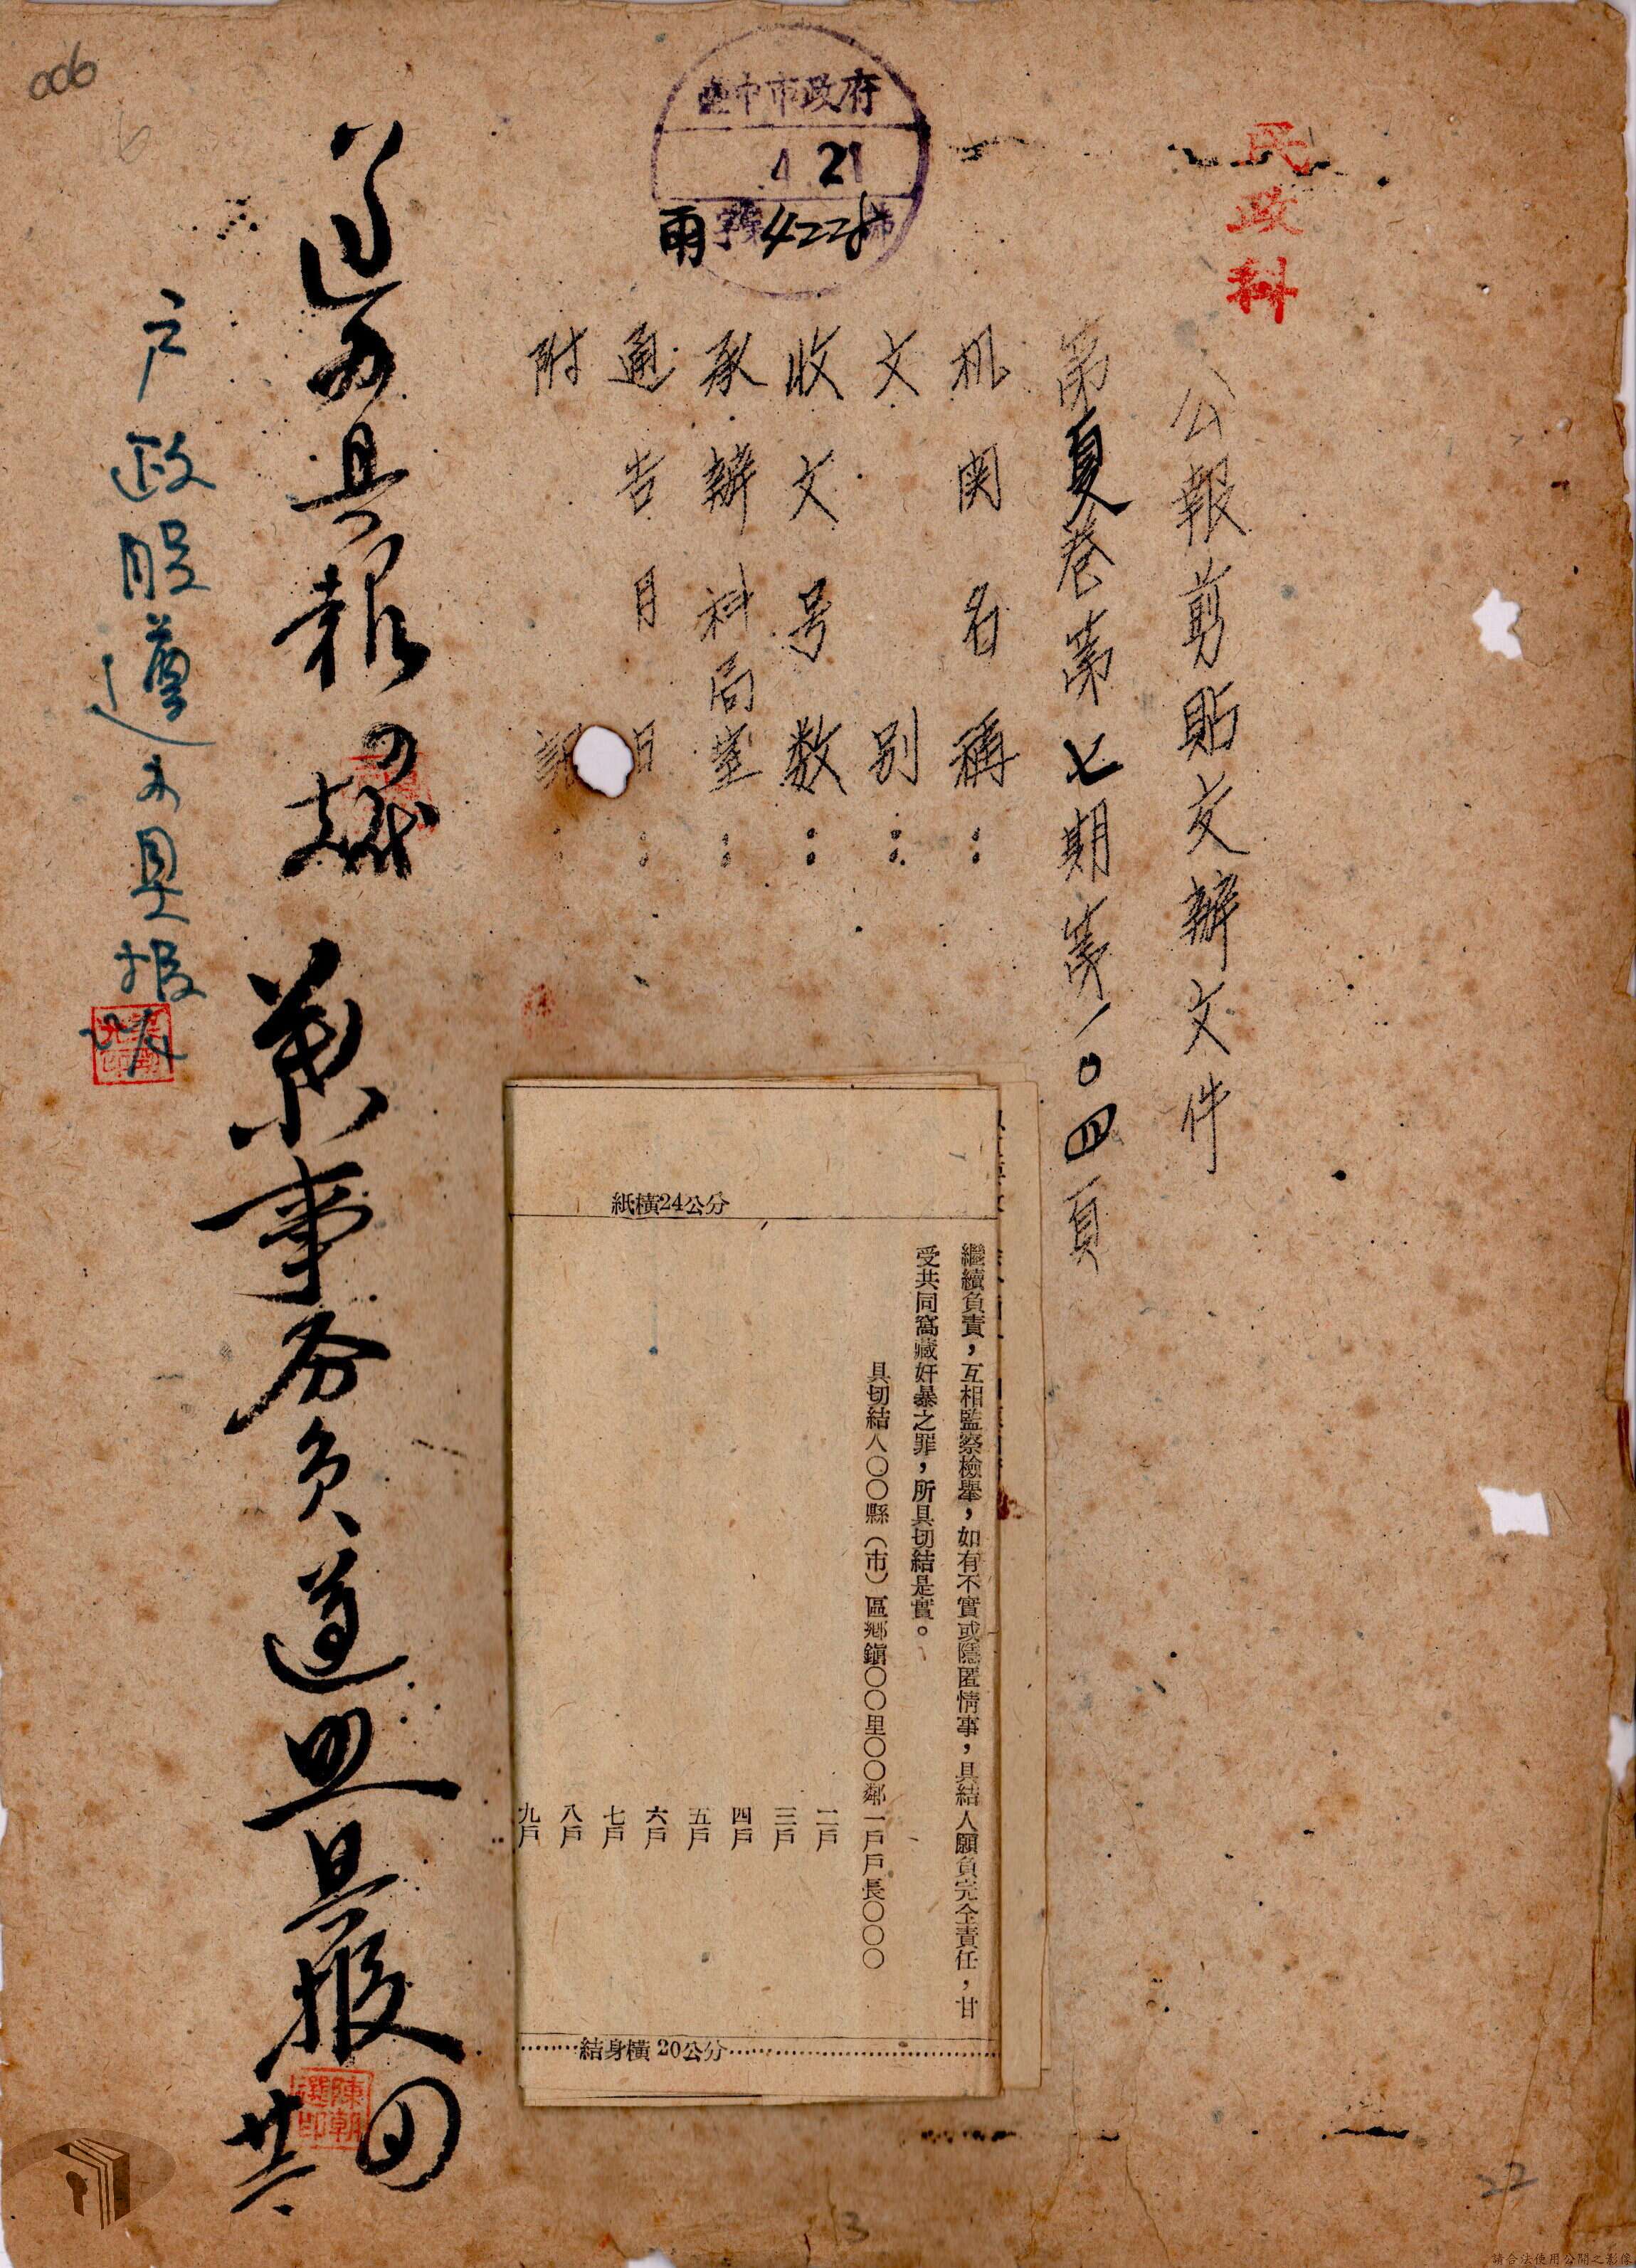 民政科
公報剪貼交辦文件
第夏卷第七期第一〇四頁
机関名稱：
文別：
收文号数：
承辦科局室：
通告月日：
附
臺中市政府
4 21
雨字第4228號
紙橫24公分
繼續負責，互相監察檢舉，如有不實或隱匿情事，具結人願負完全責任，甘
受共同窩藏奸暴之罪，所具切結是實。
具切結人〇〇縣（市）區鄉鎮〇〇里〇〇鄰一戶戶長〇〇〇
二戶
三戶
四戶
五戶
六戶
七戶
八戶
九戶
結身橫20公分
具報
事務員遵照具報
陳朝選印
戶政股遵办具報
006
6
22
3
請合法使用公開之影像